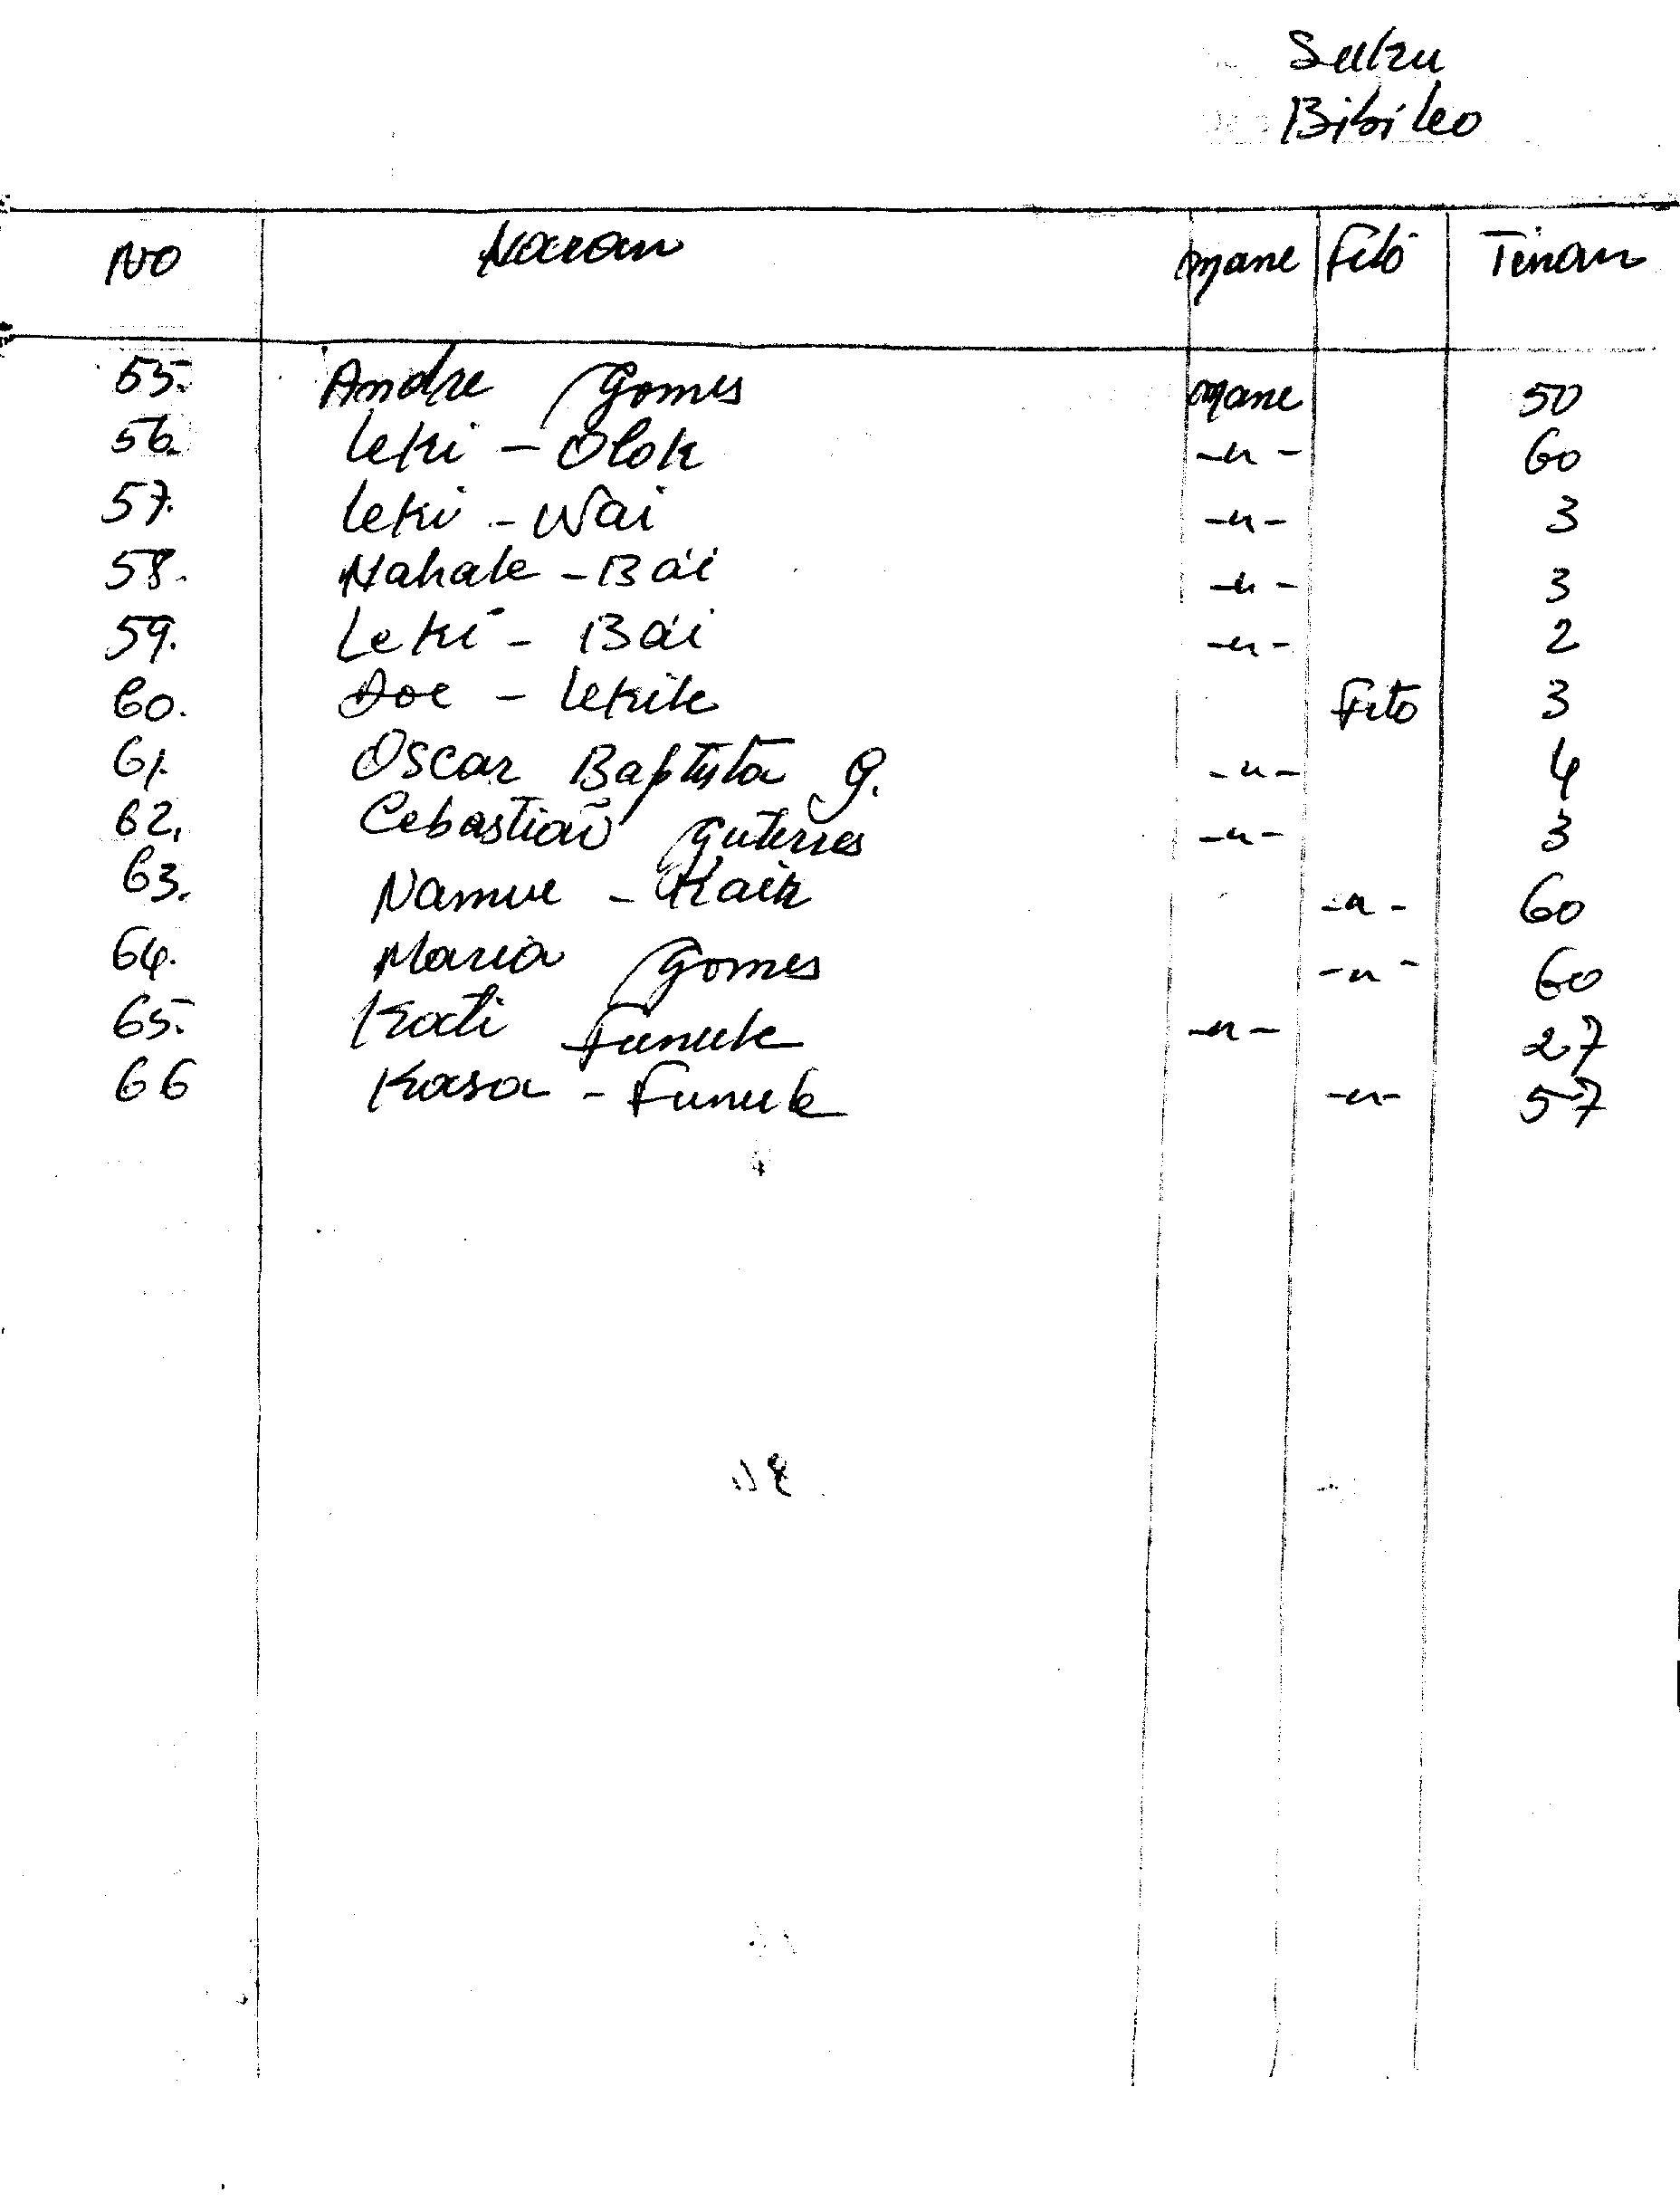 Suku
Bibileo
No Naran mane Feto Tinan
55. Andre Gomes mane 50
56. Leki - Olok -"- 60
57. Leki - Wai -"- 3
58. Nahak - Bái -"- 3
59. Leki - Bái -"- 2
60. Aoe - Lekik Feto 3
61. Oscar Baptista G. -"- 4
62. Cebastiaõ Guterres -"- 3
63. Namue - Kaik -"- 60
64. Maria Gomes -"- 60
65. Kati Funuk -"- 27
66 Kasa - Funuk -"- 57